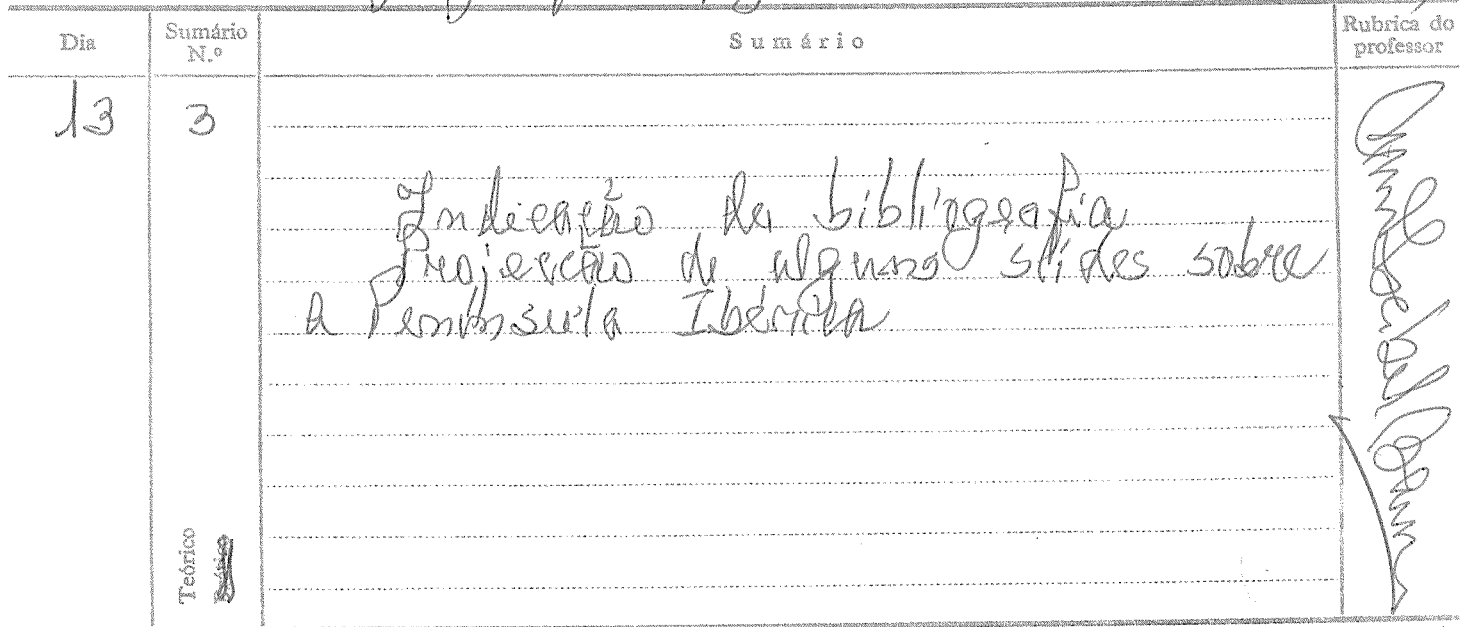 Dia
Sumário N.º
Sumário
Rubrica do professor
13
3
Indicação de bibliografia
Projecção de alguns slides sobre
a Península Ibérica
Teórico